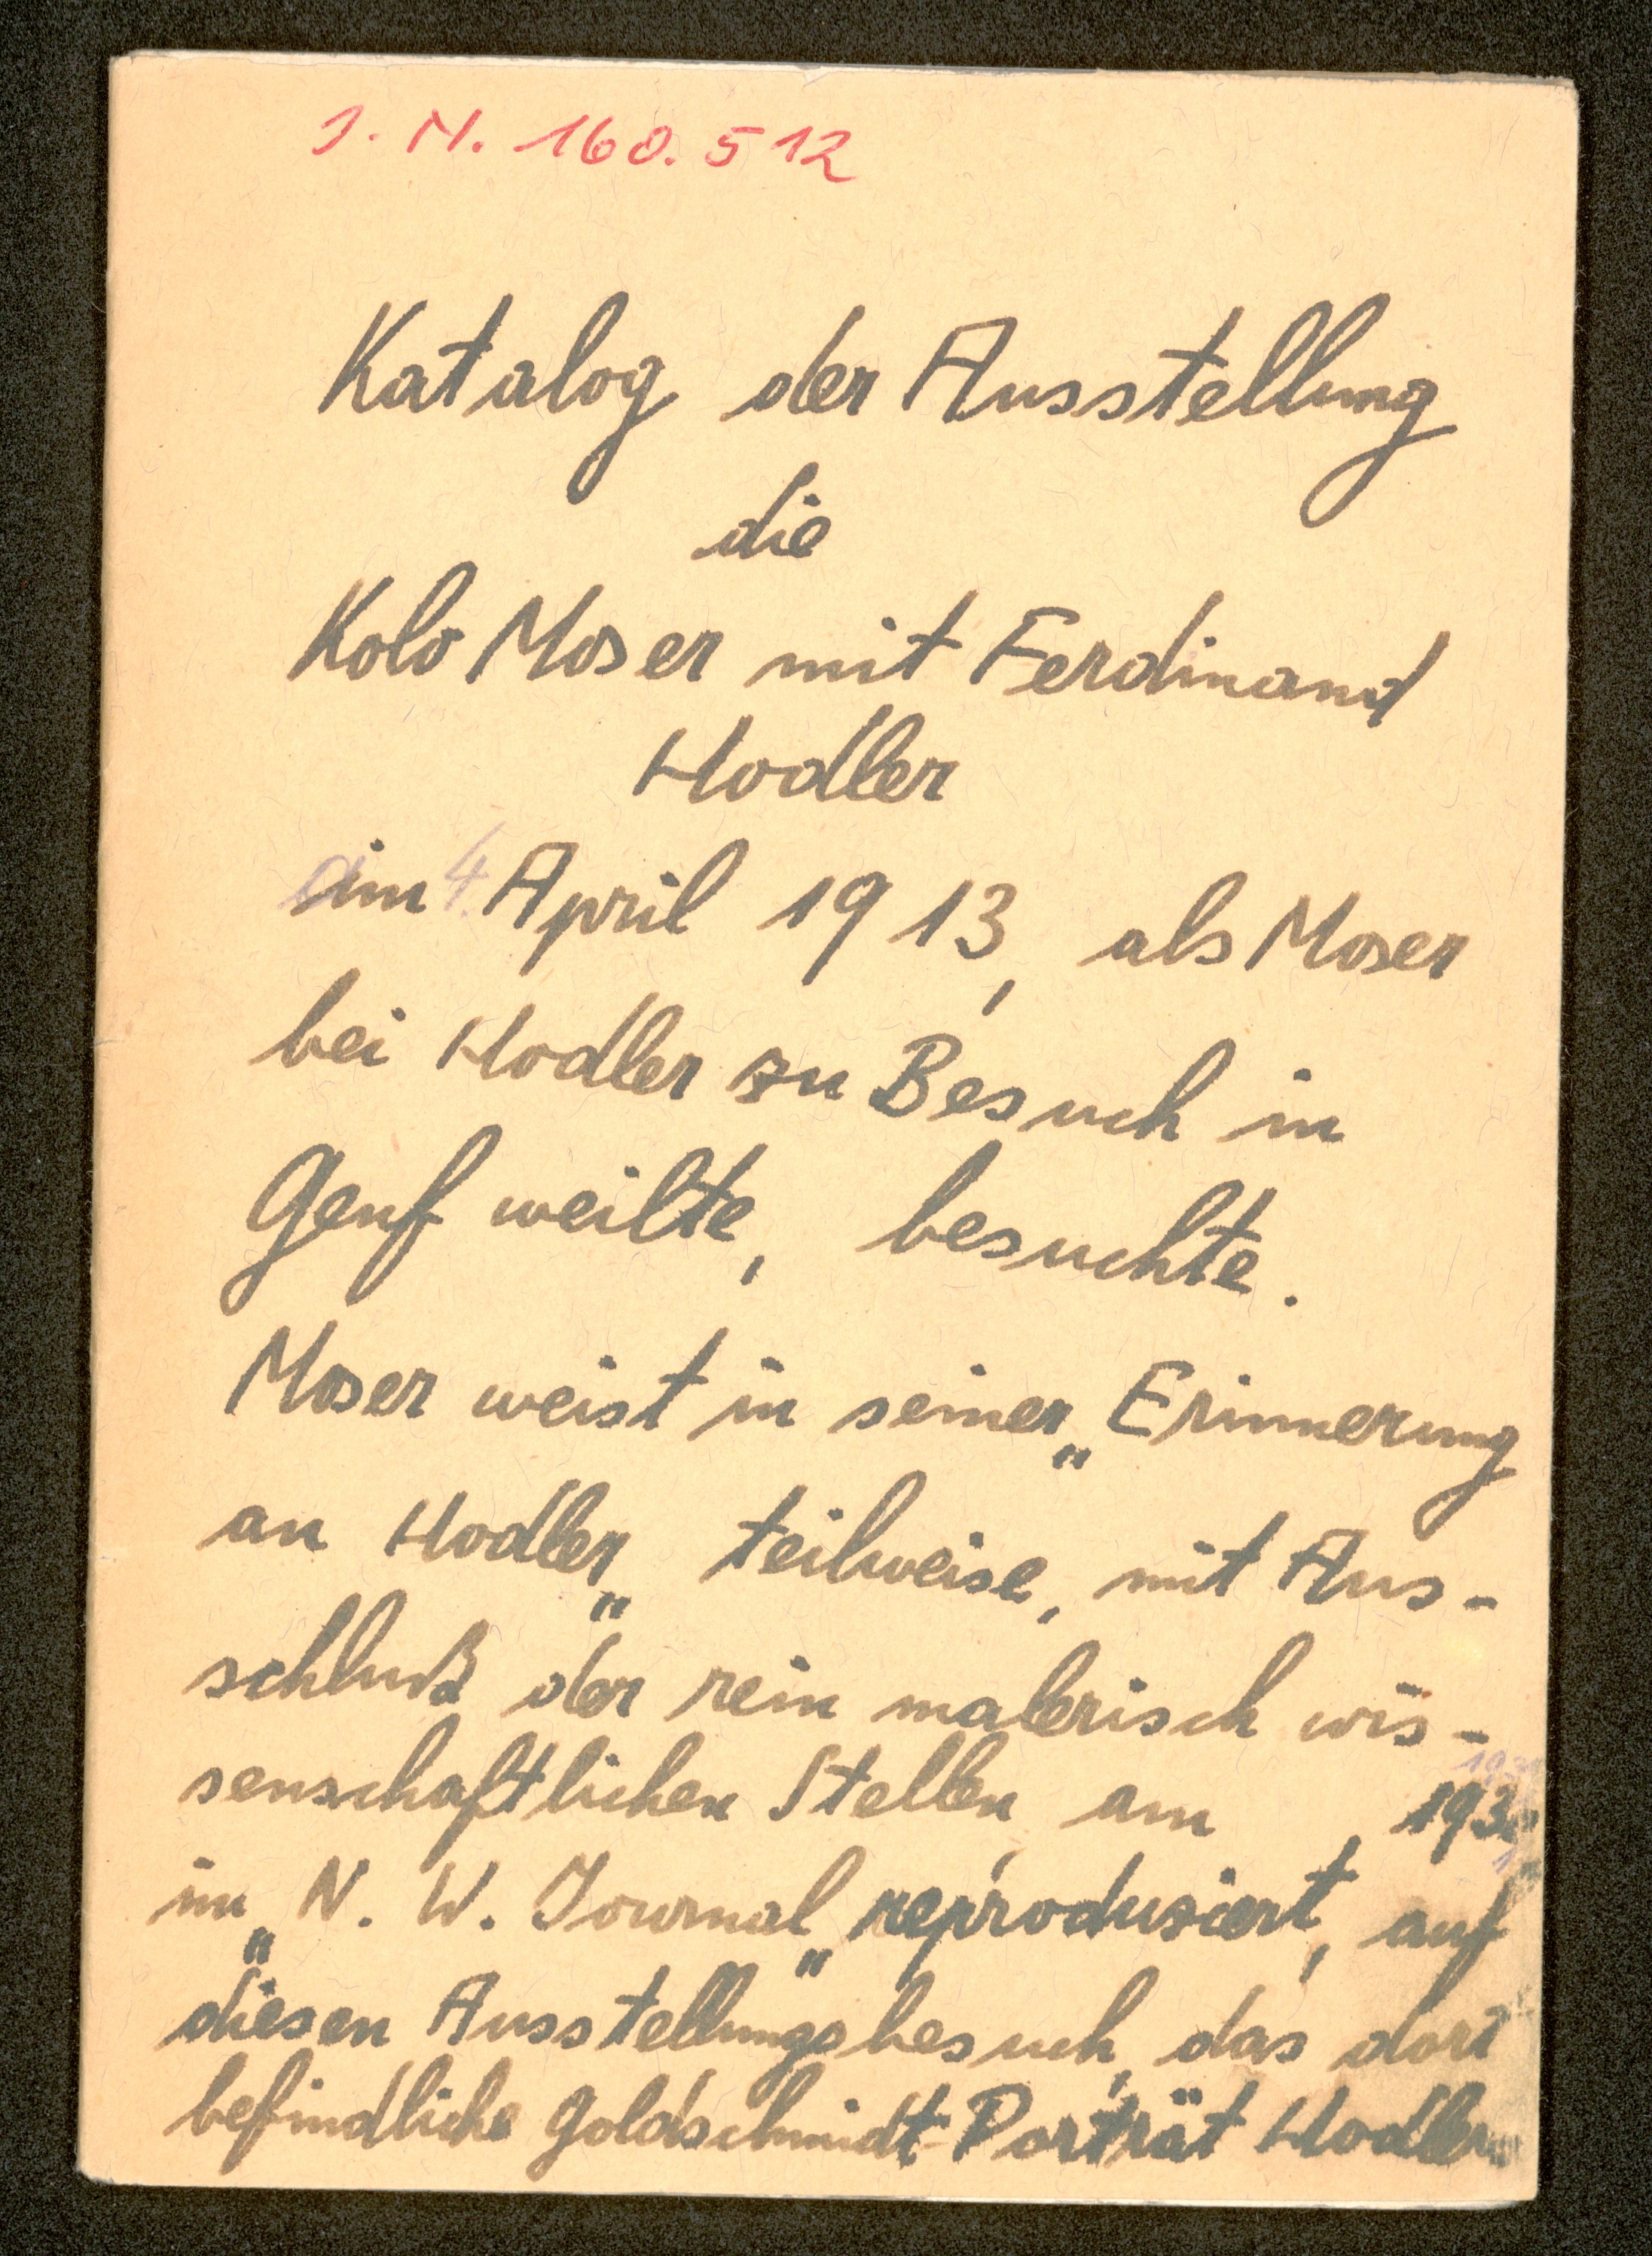 J. N. 160.512
Katalog der Ausstellung
die
Kolo Moser mit Ferdinand
Hodler
am 4. April 1913, als Moser
bei Hodler zu Besuch in
Genf weilte, besuchte.
Moser weist in seiner „Erinnerung
an Hodler„ teilweise, mit Aus-
schluß der rein malerisch wis-
senschaftlichen Stellen, am , 193
im „N. W. Journal„ reproduziert, auf
diesen Ausstellungsbesuch, das dort
befindliche Goldschmidt-Porträt Hodlers